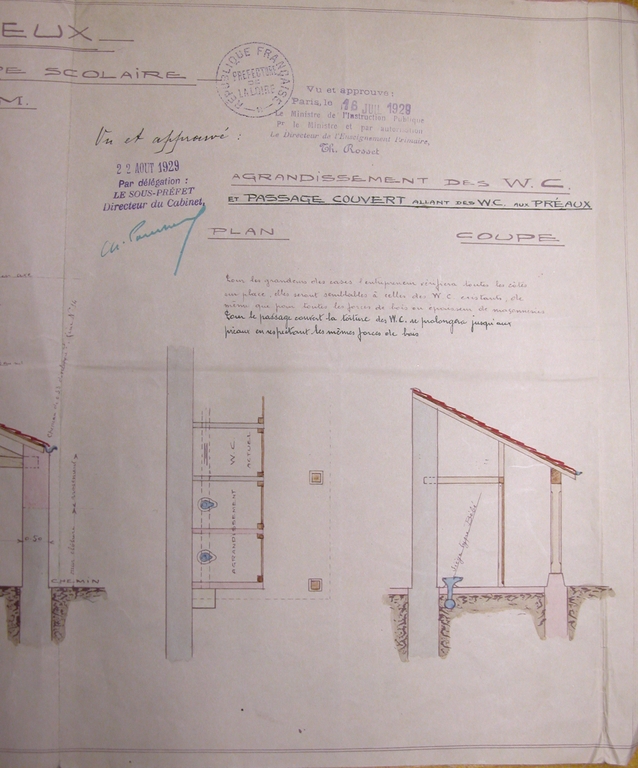 EUX_
PE SCOLAIRE
M.
RÉPUBLIQUE FRANÇAISE
PRÉFECTURE
DE
LA LOIRE
Vu et approuvé :
Paris, le 16 JUIL 1929
Le Ministre de l'Instruction Publique
Pr le Ministre et par autorisation
Le Directeur de l'Enseignement Primaire,
Th. Rosset
Vu et approuvé :
22 AOUT 1929
Par délégation :
LE SOUS-PRÉFET
Directeur du Cabinet,
AGRANDISSEMENT DES W.C.
ET PASSAGE COUVERT ALLANT DES W.C. AUX PRÉAUX
PLAN
COUPE
Pour les grandeurs des cases l'entrepreneur vérifiera toutes les côtes
sur place, elles seront semblables à celles des W.C existants, de
même que pour toutes les forces de bois ou épaisseur de maçonneries
Pour le passage couvert la toiture des W.C. se prolongera jusqu'aux
préaux en respectant les mêmes forces de bois
W C
ACTUEL
AGRANDISSEMENT
CHEMIN